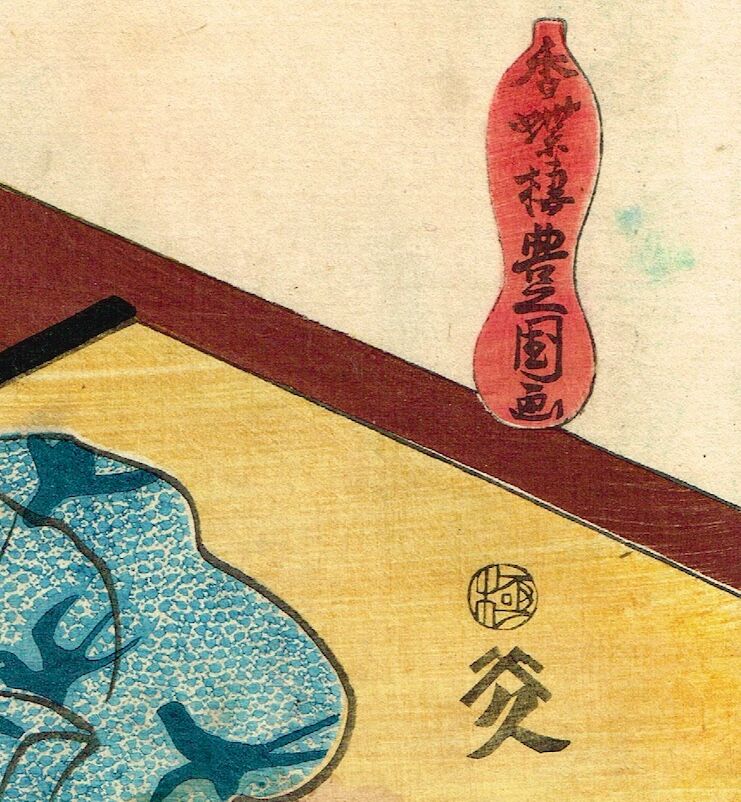 香蝶楼豊国画
極